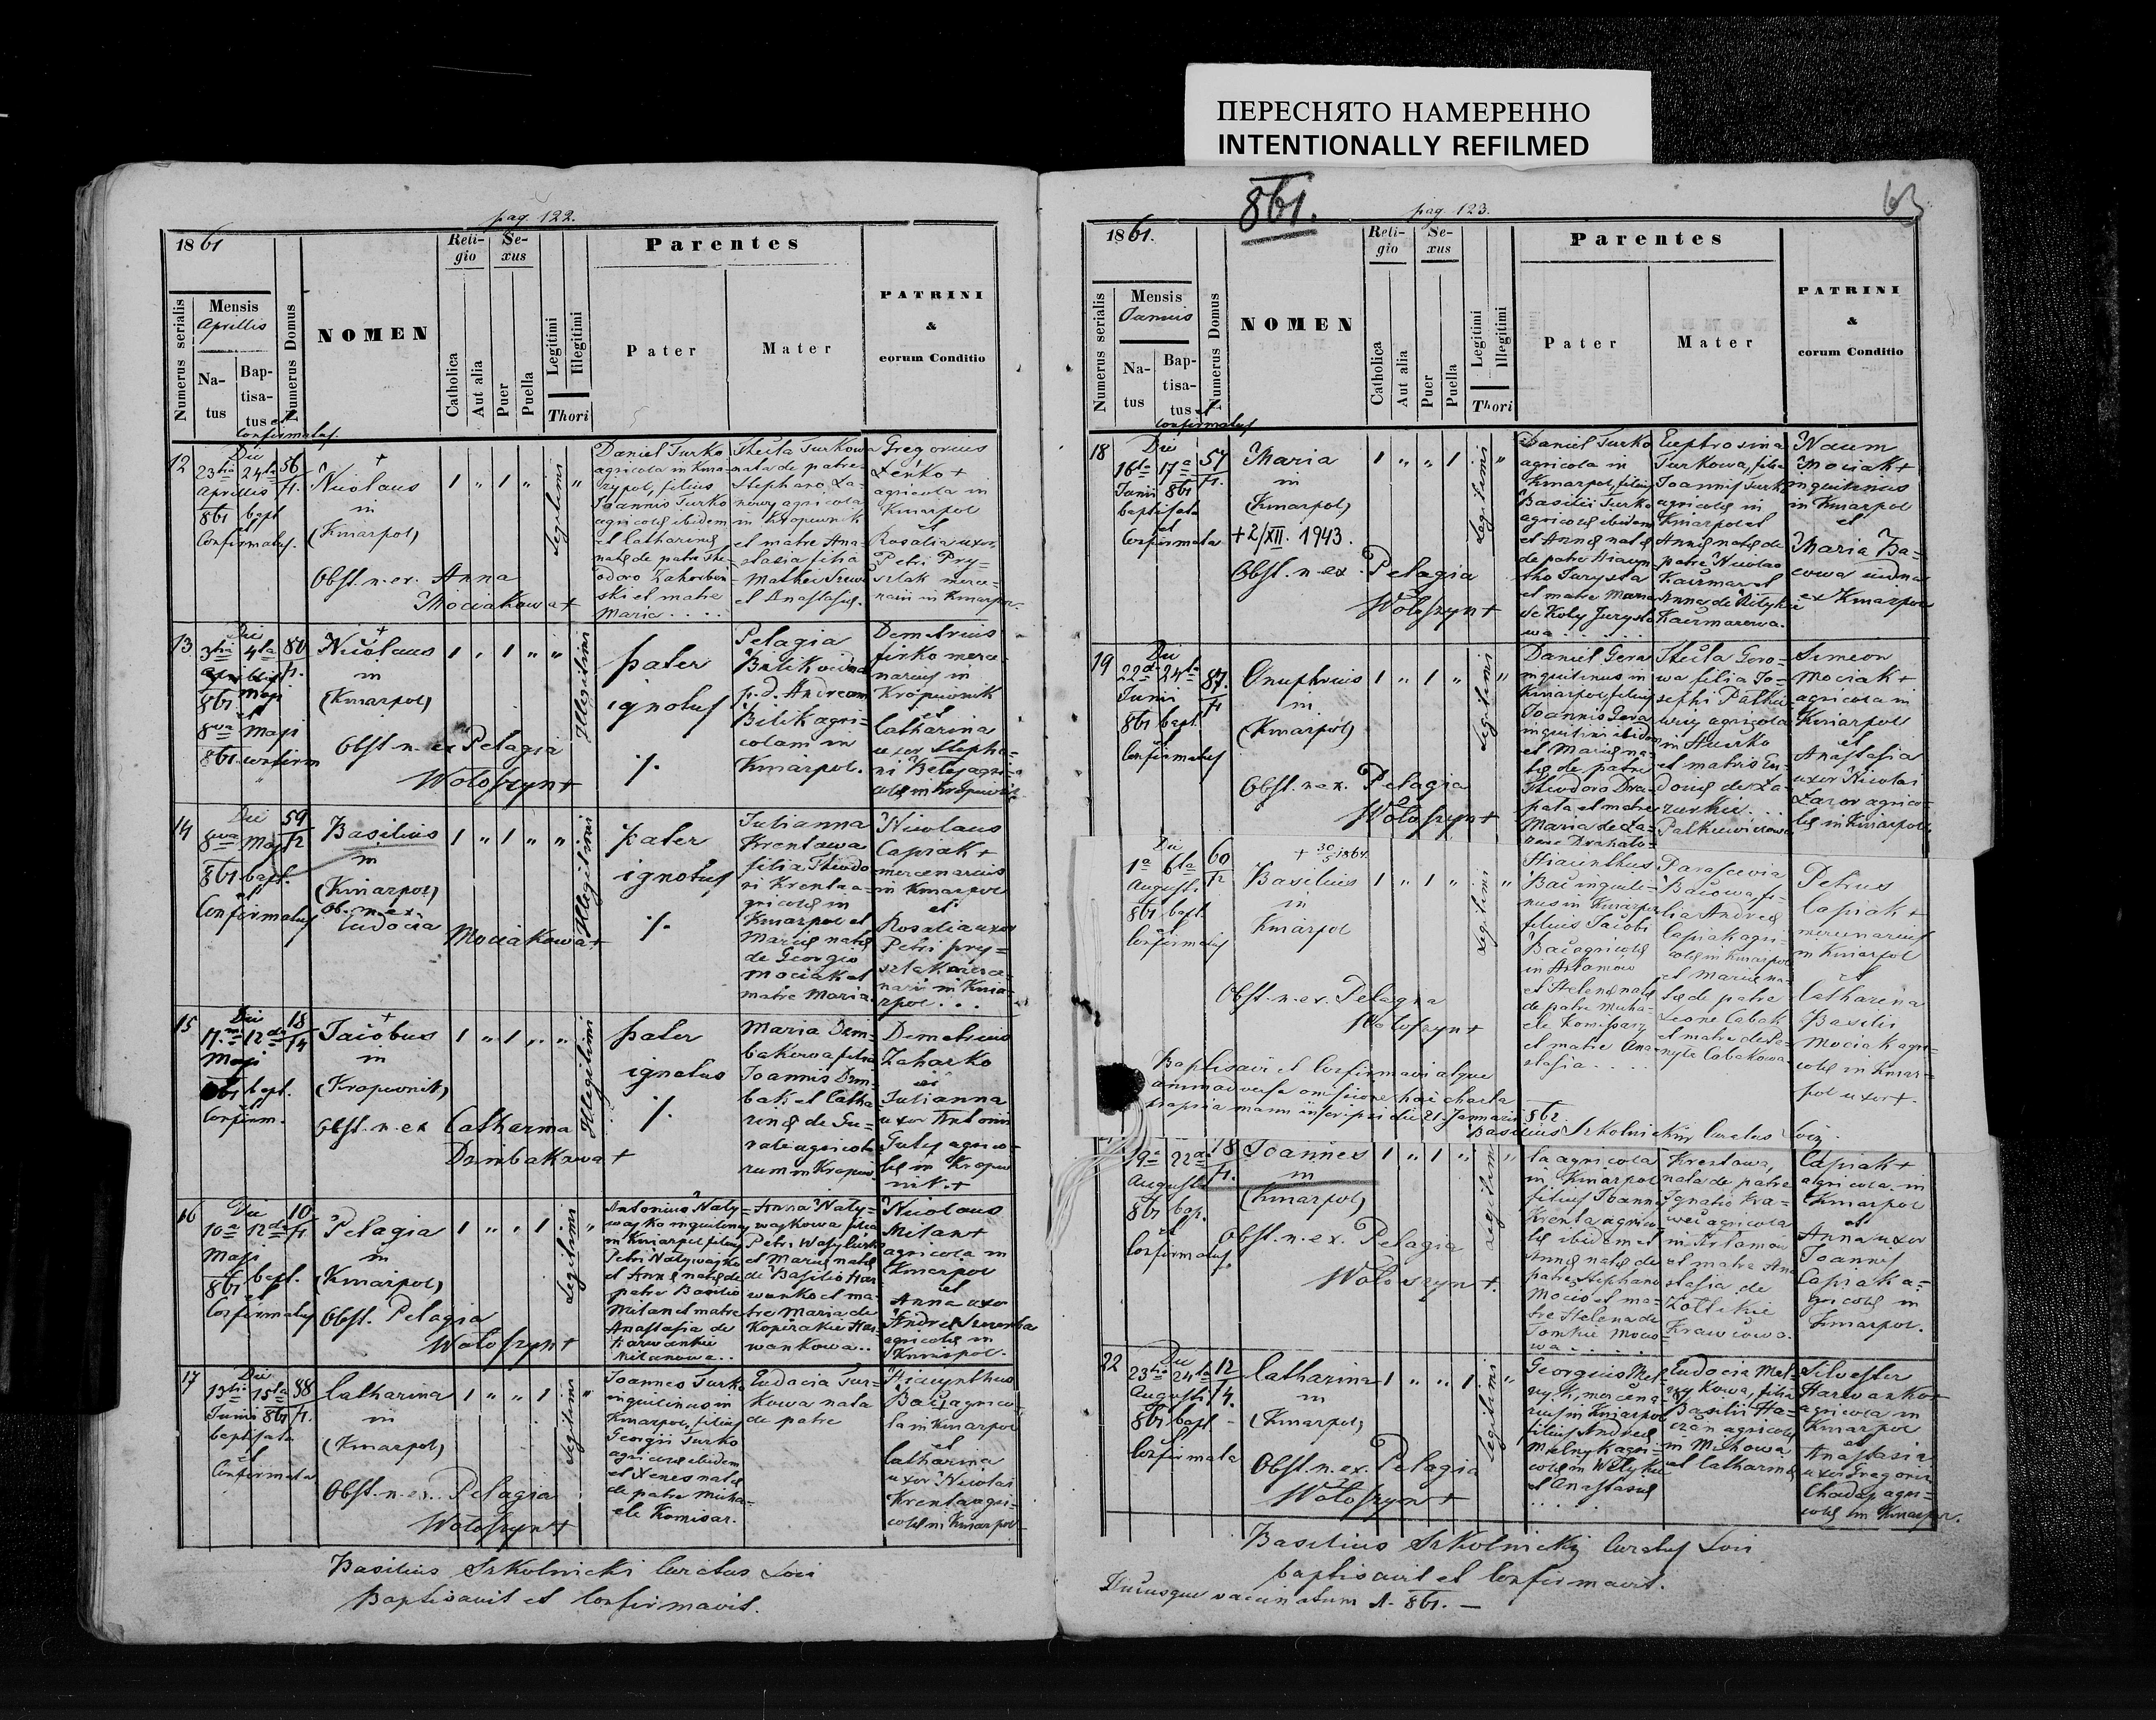 ПЕРЕСНЯТО НАМЕРЕННО
INTENTIONALLY REFILMED
pag. 122.
1861
Numerus serialis
Mensis
Aprillis
Natus
Baptisatus et
Confirmatus.
Numerus Domus
NOMEN
Religio
Catholica
Aut alia
Sexus
Puer
Puella
Legitimi
Illegitimi
Thori
Parentes
Pater
Mater
PATRINI
&
eorum Conditio
12
Die
23tia 24ta
Aprillis
861 bapt
et
Confirmatus.
56
+
Nicolaus
in
(Kniarpol)
Obst. n. ex. Anna
Mociakowa +
1 „ 1 „
Legitimi
„
Daniel Turko
agricola in Knia-
rypol, filius
Joannis Turko
agricolae ibidem
et Catharinae
natae de patre The-
odoro
et matre
Maria . . . .
Thecla Turkowa
nata de patre
Stephano
agricola
in Kropiwnik
et matre Ana-
stasia filia
Mathei
et Anastasiae.
Gregorius
Zeńko +
agricola in
Kniarpol
et
Rosalia uxor
Petri Pry-
szlak merce-
narii in Kniarpol.
13
Die
3tia 4ta
Maji
861.
et
8va Maji
861. confirm
80
+
Nicolaus
in
(Kniarpol)
Obst. n. ex Pelagia
Wołoszyn +
1 „ 1 „ „
Illegitimi
pater
ignotus
./.
Pelagia
Bilikowna
p. d. Andream
Bilik agri-
colam in
Kniarpol.
Demetrius
Jirko merce-
narius in
Kropiwnik
et
Catharina
uxor Stepha-
ni
14
Die
8va Maji
861 bapt.
et
Confirmatus
59
Basilius
in
(Kniarpol)
Ob. n. ex.
Eudocia
Mociakowa +
1 „ 1 „ „
Illegitimi
pater
ignotus
./.
Julianna
Krentowa
filia Theodo-
ri Krenta a-
gricolae in
Kniarpol et
Mariae natae
de Georgio
Mociak et
matre Maria.
Nicolaus
Capiak +
mercenarius
in Kniarpol
et
Rosalia uxor
Petri Pry-
szlak merce-
narii in Knia-
rpol . . .
15
Die
12da
Maji
861 bapt.
et
Confirm.
18
+
Jacobus
in
(Kropiwnik)
Obst. n. ex Catharina
Dembakowa +
1 „ 1 „ „
Illegitimi
pater
ignotus
./.
Maria Dem-
bakowa filia
Joannis Dem-
bak et Catha-
rinae de Gu-
agricola-
rum in Kropiw
Demetrius
Zaharko
et
Julianna
uxor Antonii
agrico-
lae in Kropiw
nik. +
16
Die
10a 12da
Maji
861 bapt.
et
Confirmatus
10
Pelagia
in
(Kniarpol)
Obst. Pelagia
Wołoszyn +
1 „ „ 1
Legitimi
„
Antonius Naty-
wajko inquilinus
in Kniarpol filius
Petri Natywajko
et Annae natae de
patre Basilio
Milan et matre
Anastasia de
Milanowa . .
Anna Naty-
wajkowa filia
Petri
et Mariae natae
de Basilio Har
wanko et ma-
tre Maria de
Har-
wankowa . .
Nicolaus
Milan +
agricola in
Kniarpol
et
Anna uxor
Andreae
agricolae in
Kniarpol.
17
Die
13tia 15ta
Junii 861
baptisata
et
Confirmata
88
Catharina
in
(Kniarpol)
Obst. n. ex. Pelagia
Wołoszyn +
1 „ „ 1
Legitimi
„
Joannes Turko
inquilinus in
Kniarpol, filius
Georgii Turko
agricolae ibidem
et Xenes natae
de patre Micha-
ele Komisar.
Eudocia Tur-
kowa nata
de patre
Hiacynthus
Bać agrico-
la in Kniarpol
et
Catharina
uxor Nicolai
Krenta agri-
colae in Kniarpol
Basilius Szkolnicki Curatus Loci
Baptisavit et Confirmavit.
861.
pag. 123.
63
1861.
Numerus serialis
Mensis
Junius
Natus
Baptisatus et
Confirmatus
Numerus Domus
NOMEN
Religio
Catholica
Aut alia
Sexus
Puer
Puella
Legitimi
Illegitimi
Thori
Parentes
Pater
Mater
PATRINI
&
eorum Conditio
18
Die
16ta 17a
Junii 861
baptisata
et
Confirmata
57
Maria
in
(Kniarpol)
+ 2/XII. 1943.
Obst. n. ex. Pelagia
Wołoszyn +
1 „ „ 1
Legitimi
„
Daniel Turko
agricola in
Kniarpol, filius
Basilii Turko
agricolae ibidem
et Annae natae
de patre Hiacyn-
tho Jurysta
et matre Maria
de Koty Jurysto
wa . . . .
Euphrosina
Turkowa, filia
Joannis Turko
agricolae in
Kniarpol et
Annae natae de
patre Nicolao
Kaczmar et
Anna de
Kaczmarowa.
Naum
Mociak +
inquilinus
in Kniarpol
et
Maria Ba-
cowa vidua
ex Kniarpol
19
Die
22da 24ta
Junii
861 bapt.
et
Confirmatus
87.
Onuphrius
in
(Kniarpol)
Obst. n. ex. Pelagia
Wołoszyn +
1 „ 1 „
Legitimi
„
Daniel Gera
inquilinus in
Kniarpol, filius
Joannis Gera
inquilini ibidem
et Mariae na-
tae de patre
Theodoro Dra-
pata et matre
Maria de
Thecla Gero-
wa filia Jo-
sephi
agricolae
in
et matris Eu-
dociae de
Simeon
Mociak +
agricola in
Kniarpol
et
Anastasia
uxor Nicolai
Lazor agrico-
lae in Kniarpol
Die
1a 6ta
Augusti
861 bapt.
et
Confirmatus
60
+ 30/5 1864.
Basilius
in
Kniarpol
Obst. n. ex. Pelagia
Wołoszyn +
1 „ 1 „
Legitimi
„
Hiacinthus
Bać inquili-
nus in Kniarpol
filius Jacobi
Bać agricolae
in Artamow
et Helenae natae
de patre Micha-
ele Komisary
et matre Ana-
stasia . . . .
Parascevia
Bacowa fi-
lia Andreae
Capiak agri-
colae in Kniarpol
et Mariae na-
tae de patre
Leone Cabak
et matre de
Cabakowa
Petrus
Capiak +
mercenarius
in Kniarpol
et
Catharina
Basilii
Mociak agri-
colae in Kniar-
pol uxor +.
Baptisavi et Confirmavi atque
animadversa omissione hac charta
propria manu inscripsi die 21 Januarii 862
Basilius Szkolnickij Curatus Loci.
19a 22da
Augusti
861 bap.
et
Confirmatus
18
Joannes
in
(Kniarpol)
Obst. n. ex. Pelagia
Wołoszyn +.
1 „ 1 „
Legitimi
„
ta agricola
in Kniarpol
filius Joannis
Krenta agrico-
lae ibidem et
Annae natae de
patre Stephano
et ma-
tre Helena de
wa . . . .
Krentowa,
nata de patre
Ignatio Kra-
wec agricola
in Artamow
et matre Ana
stasia de
Krawcowa.
Capiak +
agricola in
Kniarpol
et
Anna uxor
Joannis
Capiak a-
gricolae in
Kniarpol.
22
Die
23tia 24ta
Augusti
861 bapt.
Confirmata
12
Catharina
in
(Kniarpol)
Obst. n. ex. Pelagia
Wołoszyn +
1 „ „ 1
Legitimi
„
Georgius Mel-
nyk, mercena-
rius in Kniarpol
filius Andreae
Melnyk agri-
colae in
et Anastasiae
. . . .
Eudocia Mel-
nykowa, filia
Basilii
agricolae
in
et Catharinae
Silvester
Harwanko +
agricola in
Kniarpol
et
Anastasia
uxor Gregorii
agri-
colae in Kniarpol.
Basilius Szkolnickij Curatus Loci
baptisavit et Confirmavit.
Hucusque vaccinatum A. 861. —